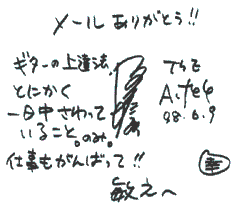 メールありがとう!!
ギターの上達法、
とにかく
一日中さわって
いること。のみ。
仕事もがんばって!!
敏えへ
98.6.9